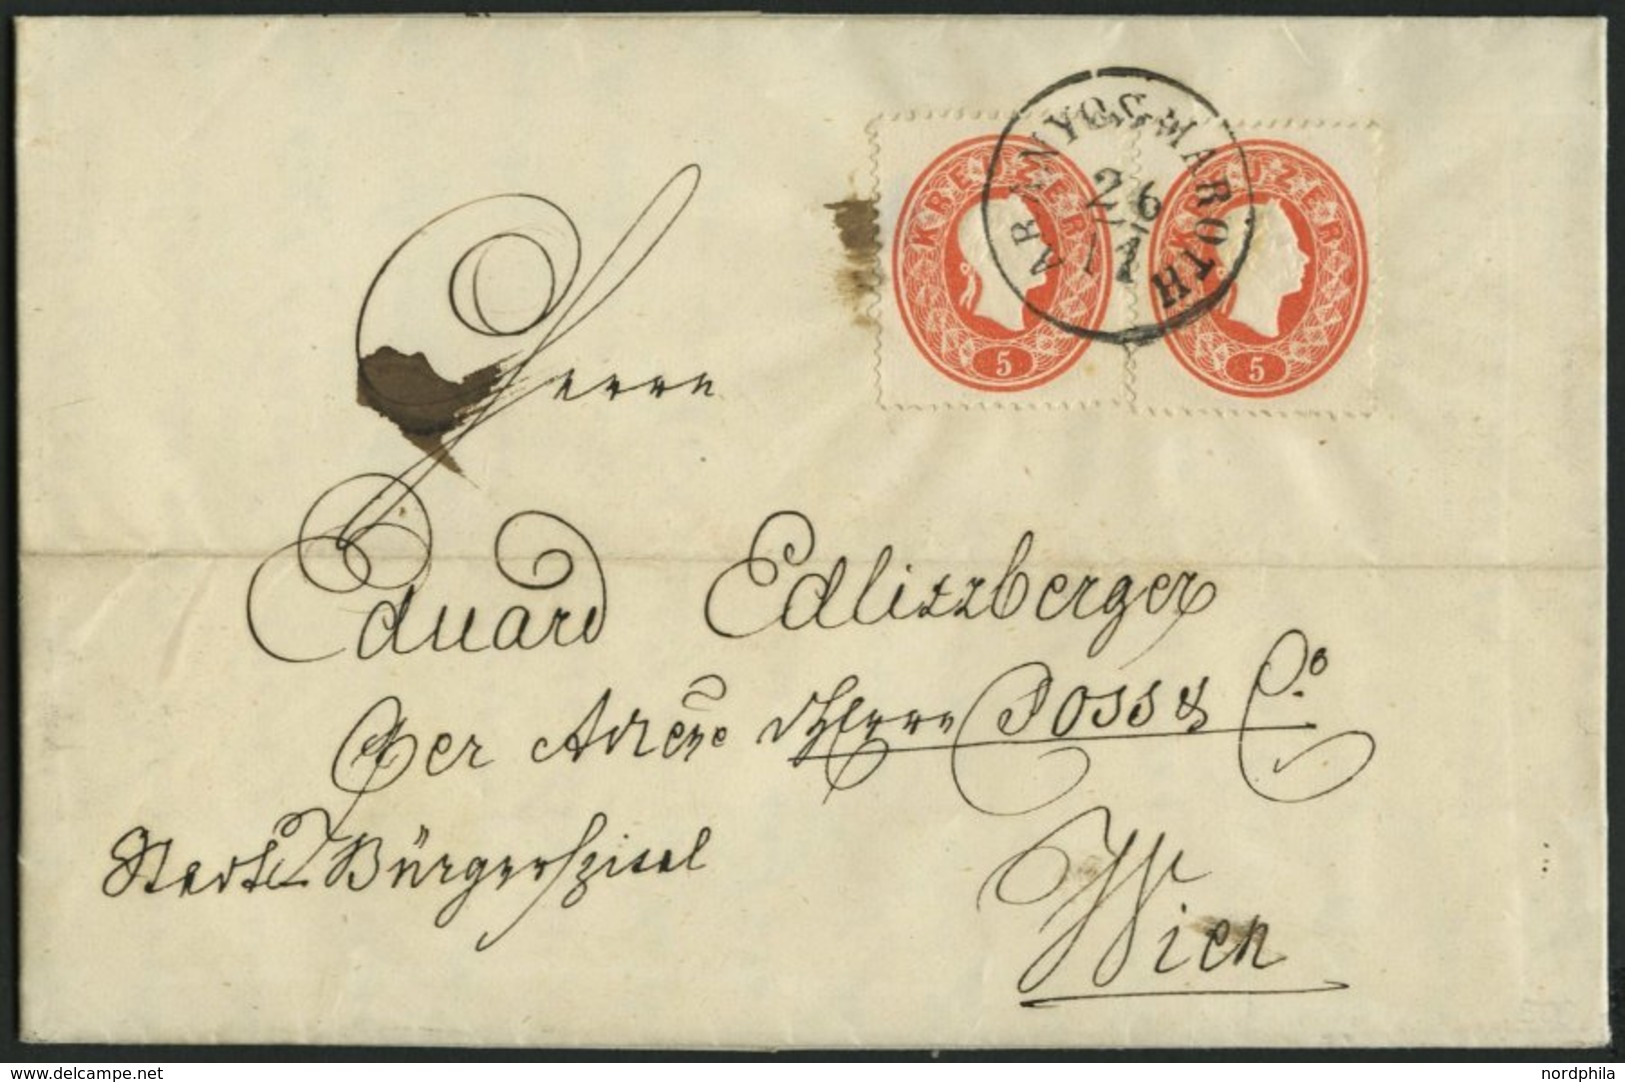 KREUZER 5
KREUZER 5
ARANYOS-MAROTH
26
1
Herrn
Eduard Edlitzberger
Per Adresse Herrn Poss & Co.
Stadt Bürgerspital
Wien
www.delcampe.net
nordphila